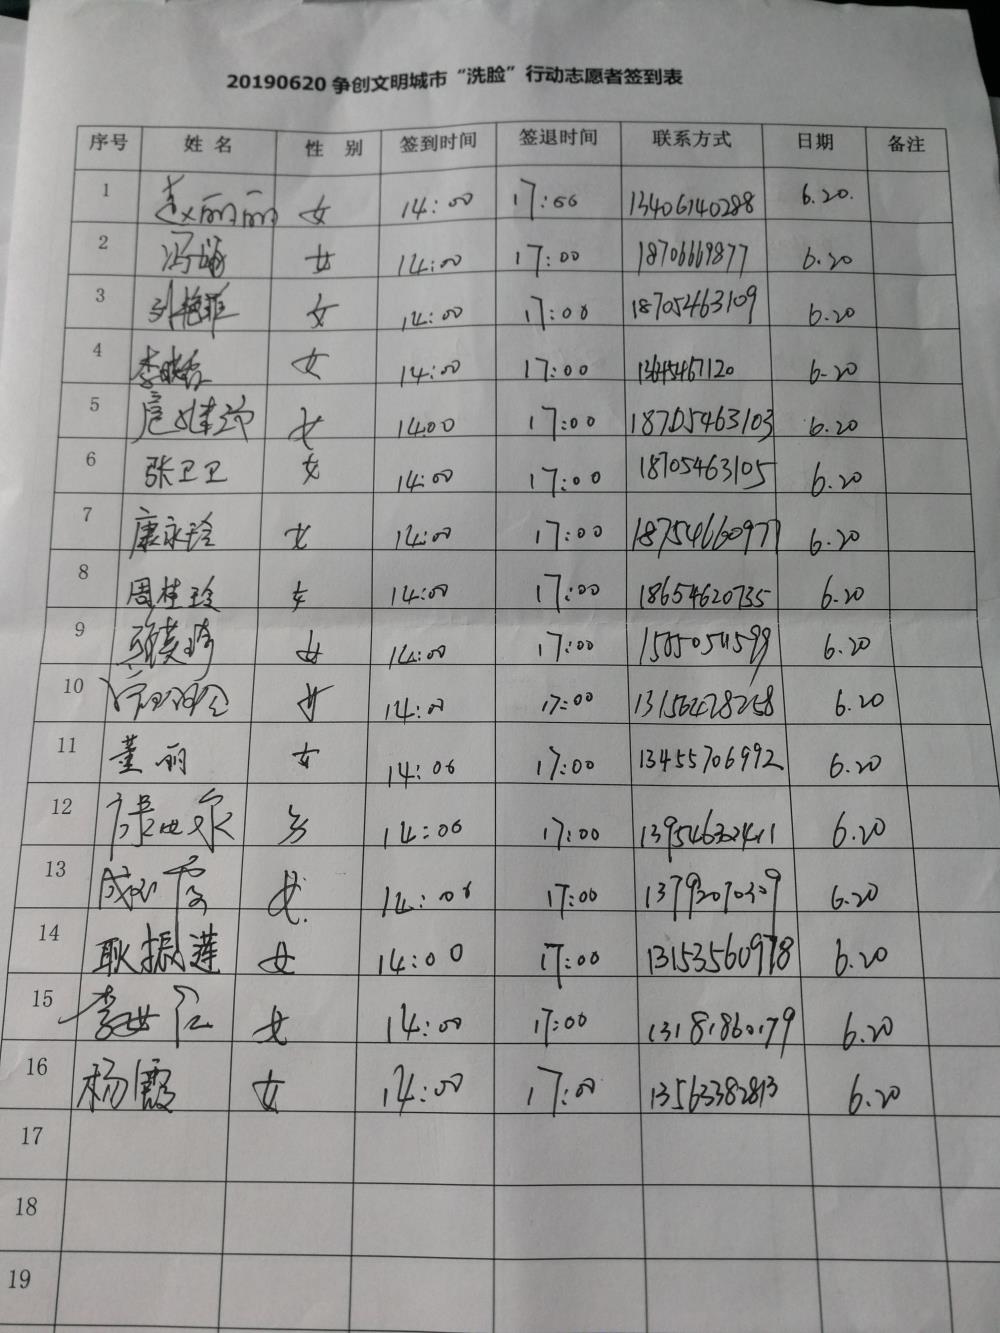 20190620争创文明城市“洗脸”行动志愿者签到表
序号 姓名 性别 签到时间 签退时间 联系方式 日期 备注
1 赵丽丽 女 14:00 17:00 13406140288 6.20.
2 冯 女 14:00 17:00 18706669877 6.20
3 刘艳菲 女 14:00 17:00 18705463109 6.20
4 李 女 14:00 17:00 13645467120 6.20
5 扈 女 1400 17:00 18705463103 6.20
6 张卫卫 女 14:00 17:00 18705463105 6.20
7 康永玲 女 14:00 17:00 18754660977 6.20
8 周桂玲 女 14:00 17:00 18654620735 6.20
9 女 14:00 17:00 6.20
10 女 14:00 17:00 6.20
11 董丽 女 14:00 17:00 13455706992 6.20
12 14:00 17:00 6.20
13 成 女. 14:00 17:00 6.20
14 耿振莲 女 14:00 17:00 13153560978 6.20
15 李 女 14:00 17:00 13181860179 6.20
16 杨霞 女 14:00 17:00 13563382813 6.20
17
18
19